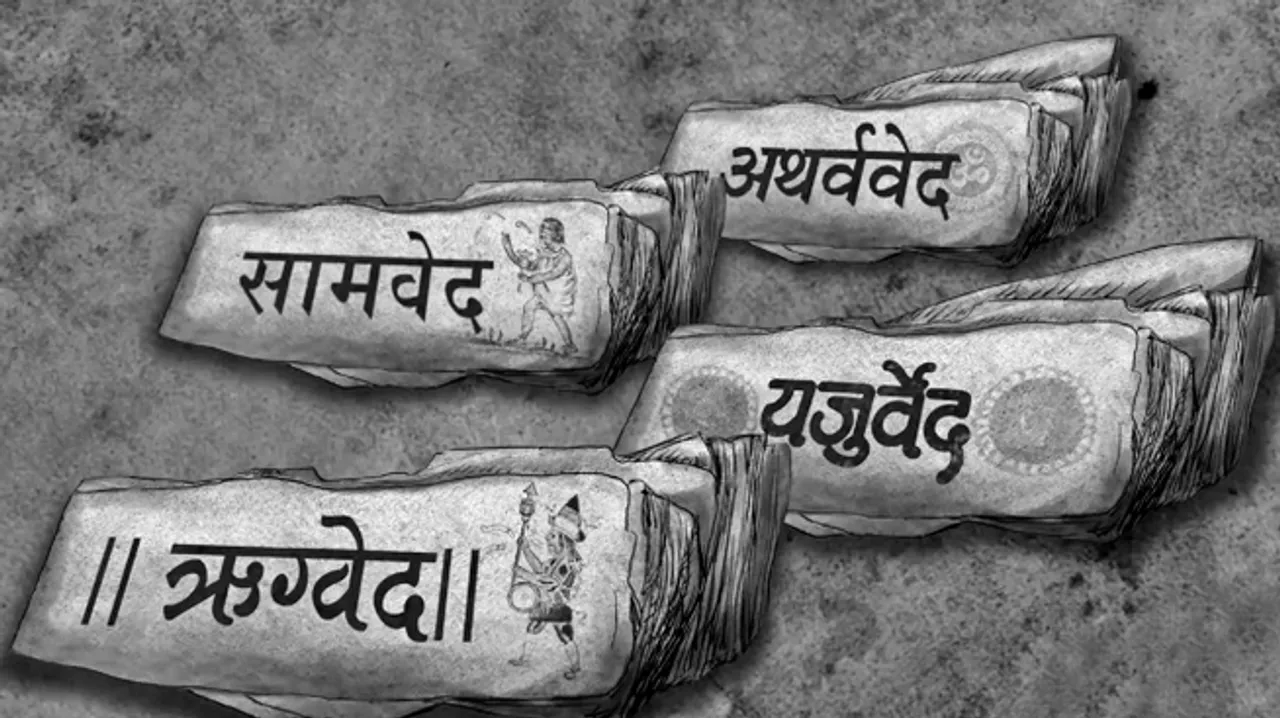 अथर्ववेद ॐ
सामवेद
यजुर्वेद
|| ऋग्वेद||